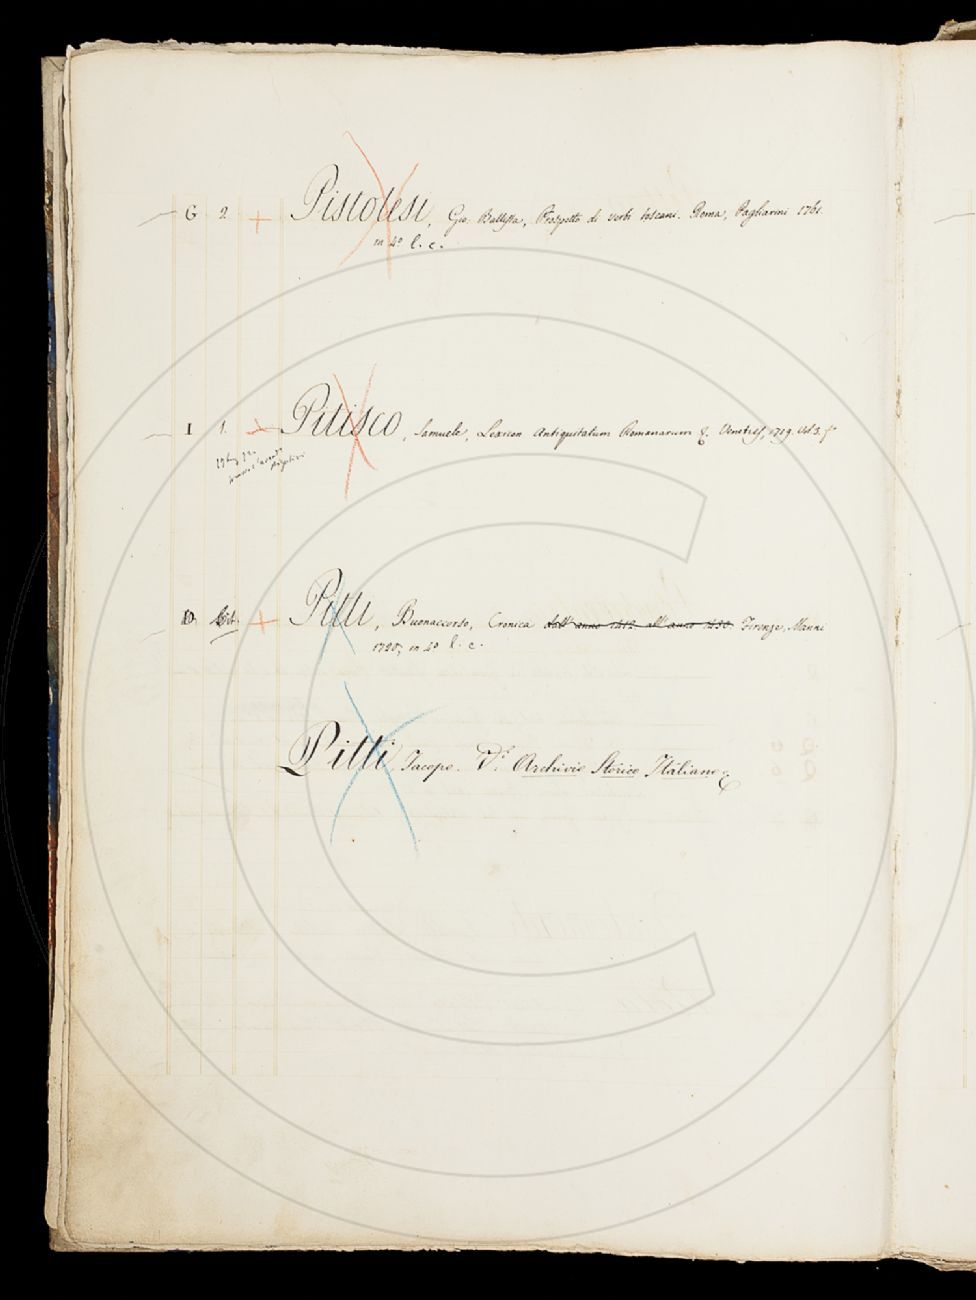 G 2 + Pistolesi, Gio. Battista, Prospetto di verbi toscani. Roma, Pagliarini 1761
in 4º l. c.
I 1. + Pitisco, Samuele, Lexicon Antiquitatum Romanarum &. Venetiis, 1719. Vol 3. fº
D + Pitti, Buonaccorso, Cronica dall'anno 1412 all'anno 1430. Firenze, Manni
1720, in 4º l. c.
Pitti, Jacopo. V.e Archivio Storico Italiano &